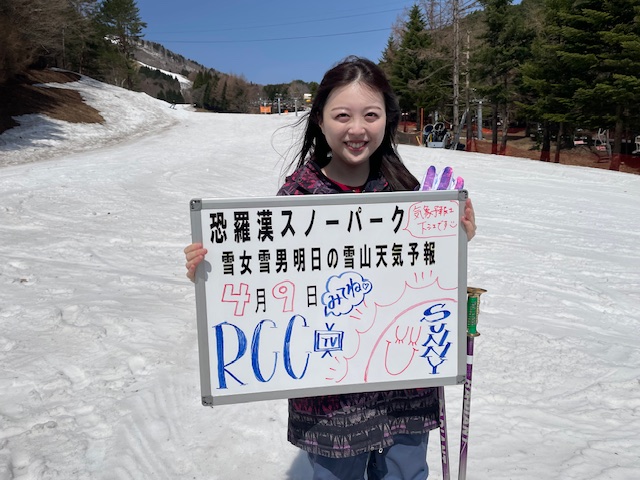 恐羅漢スノーパーク
気象予報士
下エです
雪女雪男明日の雪山天気予報
4月9日
みてね♡
RCC
TV
SUNNY